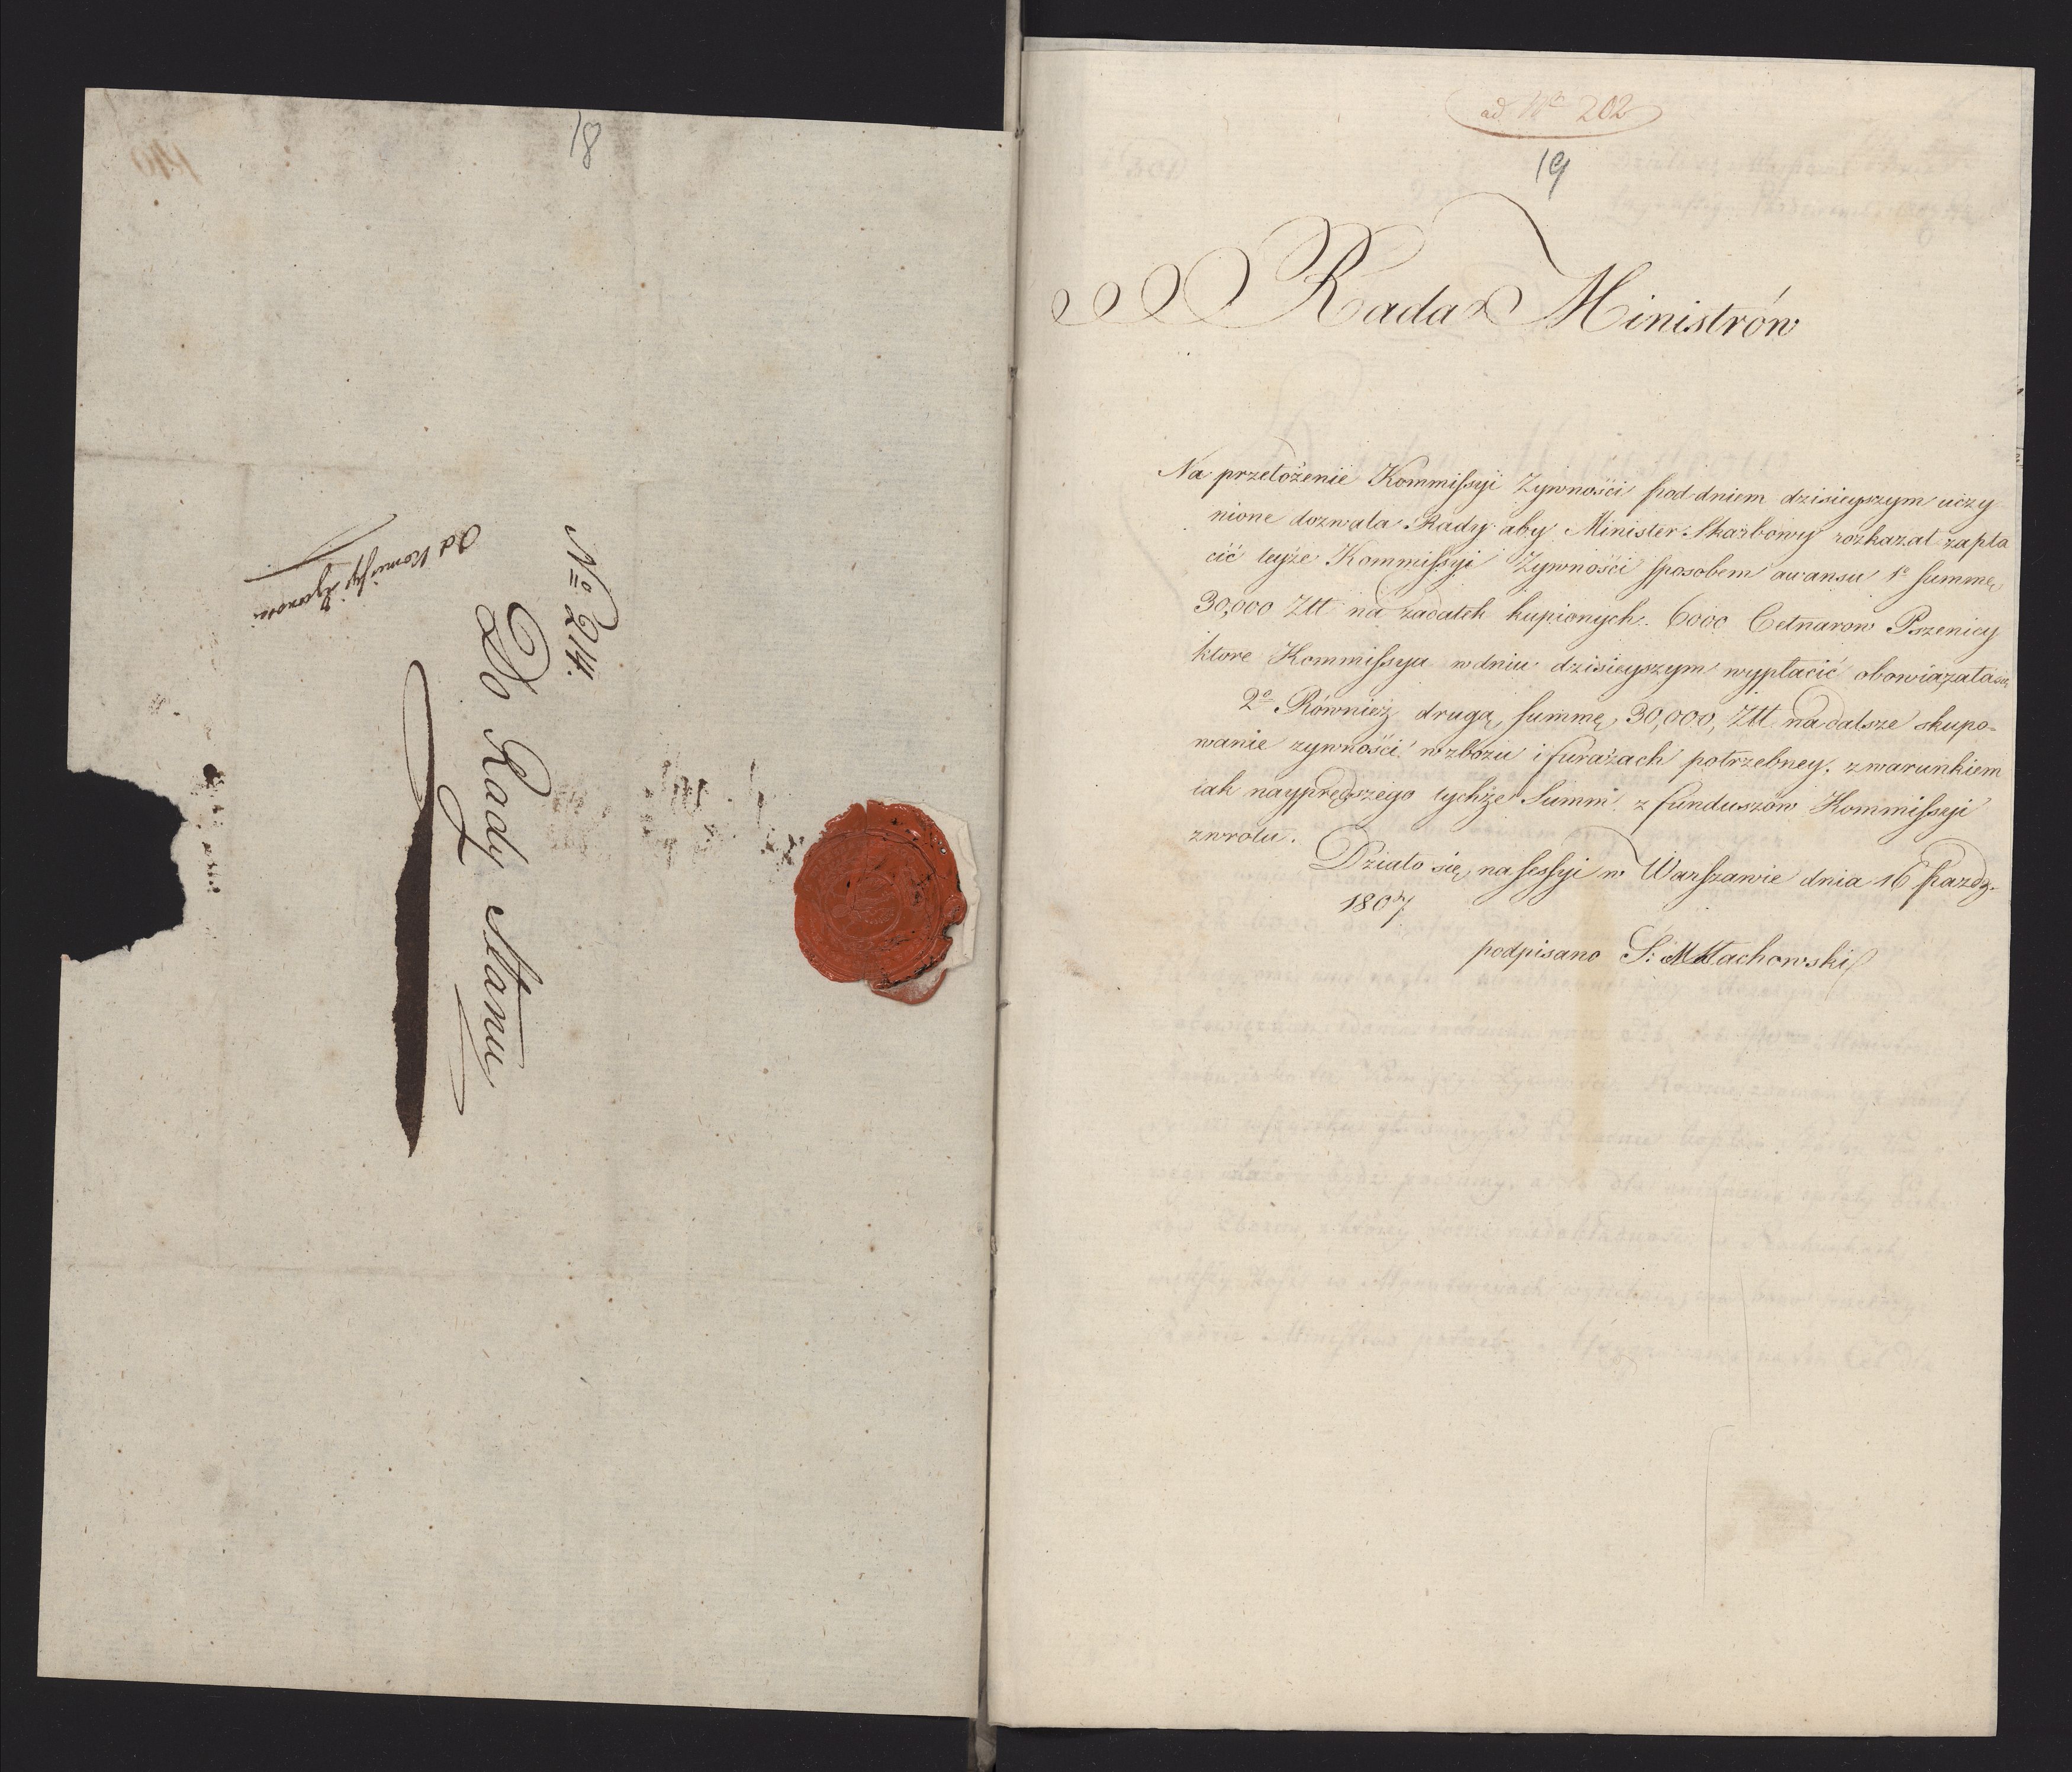 18
No 214.
Do Rady Stanu
Od Komissyi Żywnosci
ad Nro 202
19
Rada Ministrów
Na przełożenie Kommissyi Zywności pod dniem dzisieyszym uczy
nione dozwala Rady aby Minister Skarbowy rozkazał zapła
cić teyże Kommissyi Zywności sposobem awansu 1o summę
30,000 Złł na zadatek kupionych 6000 Cetnarow Pszenicy
ktore Kommissya w dniu dzisieyszym wypłacić obowiązała się,
2o Również drugą summę 30,000, Złł na dalsze skupo-
wanie zywności w zbożu i furażach potrzebney, z warunkiem
iak nayprędszego tychże Summ z funduszów Kommissyi
zwrotu.
Działo się na sessyi w Warszawie dnia 16 pazdz.
1807
podpisano S: Małachowski